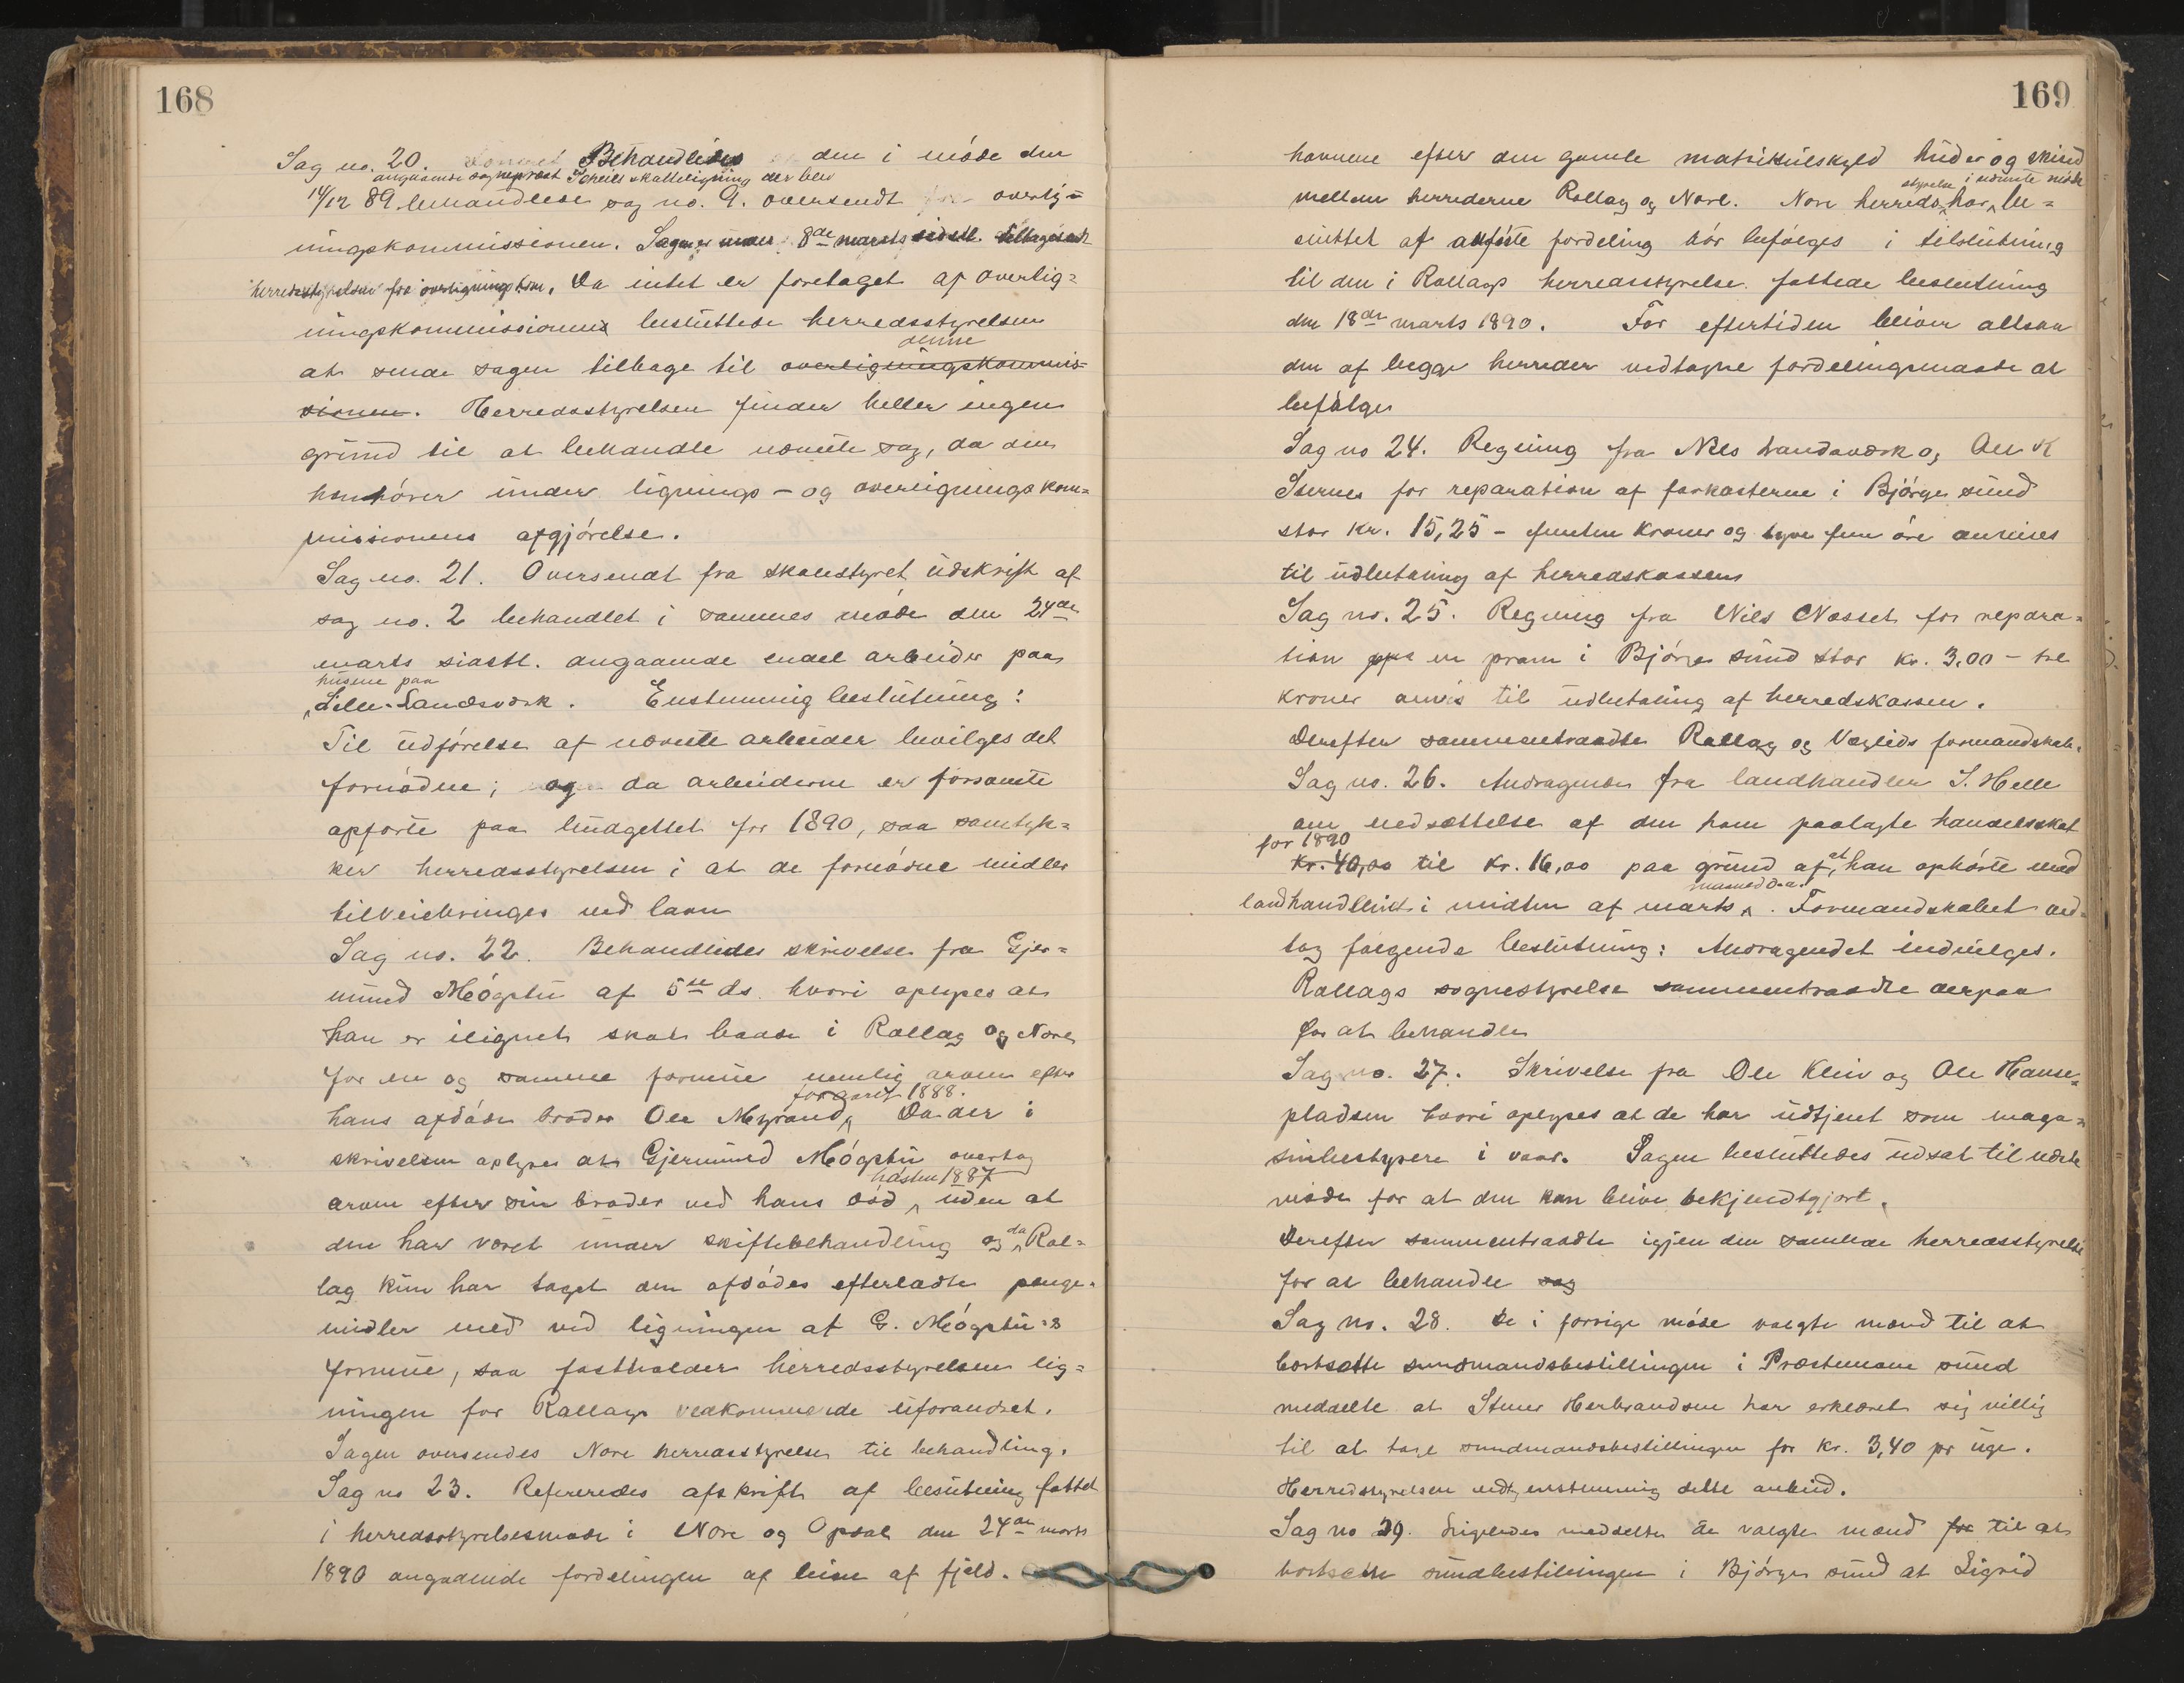 168
Sag no. 20. Behandledes den i möde den
angaaende sogneprest Scheels skatteligning der blev
14/12 89 behandlede sag no. 9. oversendt overlig=
ningskommissionen. Sagen er under 8de marts sidstl. tilbagesendt
herredsstyrelsen fra overligningskom. Da intet er foretaget af overlig=
ningskommissionen besluttede herredsstyrelsen
denne
at sende sagen tilbage til overligningskommis=
sionen. Herredsstyrelsen finder heller ingen
grund til at behandle nævnte sag, da den
henhörer under lignings- og overligningskom=
missionens afgjörelse.
Sag no. 21. Oversendt fra skolestyret udskrift af
sag no. 2 behandlet i sammes möde den 24de
marts sidstl. angaaende endel arbeider paa
husene paa
Lille-Landsværk. Enstemmig beslutning:
Til udförelse af nævnte arbeider bevilges det
fornödne; og da arbeiderne er forsaavidt
opförte paa budgettet for 1890, saa samtyk=
ker herredsstyrelsen i at de fornödne midler
tilveiebringes ved laan
Sag no. 22. Behandledes skrivelse fra Gjer=
mund Mögstu af 5te ds. hvori oplyses at
han er ilignet skat baade i Rollag og Nore
for en og samme formue nemlig arven efter
for aaret 1888.
hans afdöde broder Ole Myrand. Da der i
skrivelsen oplyses at Gjermund Mögstu overtog
hösten 1887
arven efter sin broder ved hans död, uden at
den har været under skiftebehandling og da Rol=
lag kun har taget den afdödes efterladte penge=
midler med ved ligningen af G. Mögstu's
formue, saa fastholder herredsstyrelsen lig=
ningen for Rollags vedkommende uforandret.
Sagen oversendes Nore herredsstyrelse til behandling.
Sag no 23. Refereredes afskrift af beslutning fattet
i herredsstyrelsesmöde i Nore og Opdal den 24de marts
1890 angaaende fordelingen af leien af fjeld.
169
havnene efter den gamle matrikulskyld huder og skind
styrelse i nævnte möde
mellem herrederne Rollag og Nore. Nore herreds har be=
sluttet at anförte fordeling bör befölges i tilslutning
til den i Rollags herredsstyrelse fattede beslutning
den 18de marts 1890. For eftertiden bliver altsaa
den af begge herreder vedtagne fordelingsmaade at
befölge
Sag no 24. Regning fra Nils Landsværk og Ole K
Sternes for reparation af farkosterne i Björge sund
stor kr. 15,25 - femten kroner og tyve fem öre anvises
til udbetaling af herredskassen
Sag no. 25. Regning fra Nils Næsset for repara=
tion en pram i Björge sund stor kr. 3,00 - tre
kroner anvis til udbetaling af herredskassen.
Derefter sammentraadte Rollag og Veglids formandskab.
Sag no. 26. Andragende fra landhandler S. Helle
om nedsættelse af den ham paalagte handelsskat
for 1890
kr. 40,00 til kr. 16,00 paa grund af, at han ophörte med
landhandleriet i midten af marts. Formandskabet ved=
tog fölgende beslutning: Andragendet indvilges.
Rollags sognestyrelse sammentraadte derpaa
for at behandle
Sag no. 27. Skrivelse fra Ole Kleiv og Ole Hanse=
pladsen hvori oplyses at de har udtjent som maga=
sinbestyrere i vaar. Sagen besluttedes udsat til næste
möde for at den kan blive bekjendtgjort.
Derefter sammentraadte igjen den samlede herredsstyrelse
for at behandle sag
Sag no. 28. De i forrige möde valgte mænd til at
bortsætte sundmandsbestillingen i Præstemoen sund
meddelte at Stener Herbrandsen har erklæret sig villig
til at tage sundmandsbestillingen for kr. 3,40 pr uge.
Herredsstyrelsen vedtog enstemmig dette anbud.
Sag no 29. Ligeledes meddelte de valgte mænd for til at
bortsætte sundbestillingen i Björge sund at Sigrid